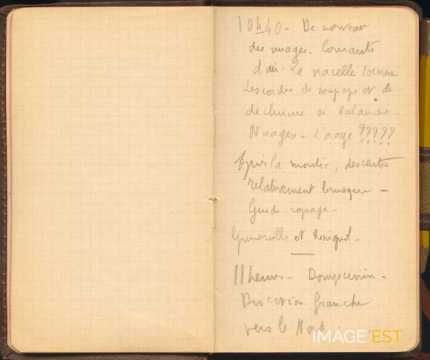 10h40 - De nouveau
des nuages. Courants
d'air. La nacelle tourne
Les cordes de soupape et de
déchirure se balancent.
Nuages - L'orage ?????
Après la montée, descente
relativement brusque -
Guide-ropage.
et
11 heures -
Direction franche
vers le Nord
IMAGE'EST